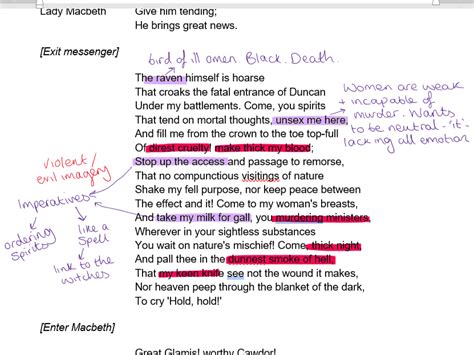 Lady Macbeth Give him tending;
He brings great news.
[Exit messenger]
bird of ill omen. Black. Death.
The raven himself is hoarse
That croaks the fatal entrance of Duncan
Under my battlements. Come, you spirits
That tend on mortal thoughts, unsex me here,
And fill me from the crown to the toe top-full
Of direst cruelty! make thick my blood;
Stop up the access and passage to remorse,
That no compunctious visitings of nature
Shake my fell purpose, nor keep peace between
The effect and it! Come to my woman's breasts,
And take my milk for gall, you murdering ministers,
Wherever in your sightless substances
You wait on nature's mischief! Come, thick night,
And pall thee in the dunnest smoke of hell,
That my keen knife see not the wound it makes,
Nor heaven peep through the blanket of the dark,
To cry 'Hold, hold!'
Women are weak
+ incapable of
murder. Wants
to be neutral - 'it'-
lacking all emotion
violent/
evil imagery
Imperatives
ordering
spirits
like a
spell
link to the
witches
[Enter Macbeth]
Great Glamis! worthy Cawdor!